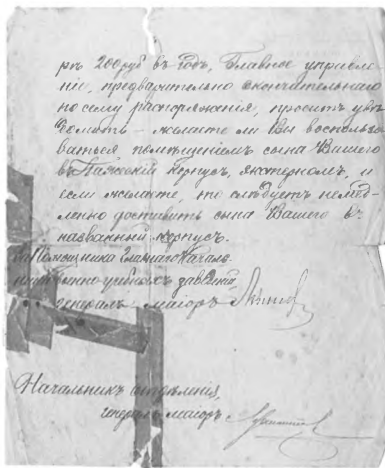 ръ 200 руб въ годъ, Главное управле-
ніе, предварительно окончательнаго
по сему распоряженія, проситъ увѣ
домить – желаете ли Вы воспользо
ваться помѣщеніемъ сына Вашего
въ Пажескій Корпусъ, экстерномъ, и
если желаете, то слѣдуетъ немед-
ленно доставить сына Вашего въ
названный корпусъ.
За Помощника Главнаго Началь
военно-учебныхъ заведеній,
генералъ маіоръ
Начальникъ отдѣленія,
генералъ маіоръ